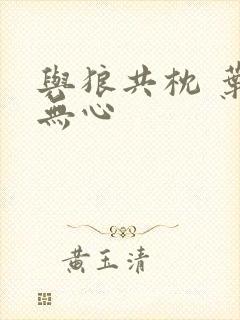 與狼共枕 葉
無心
黃玉清